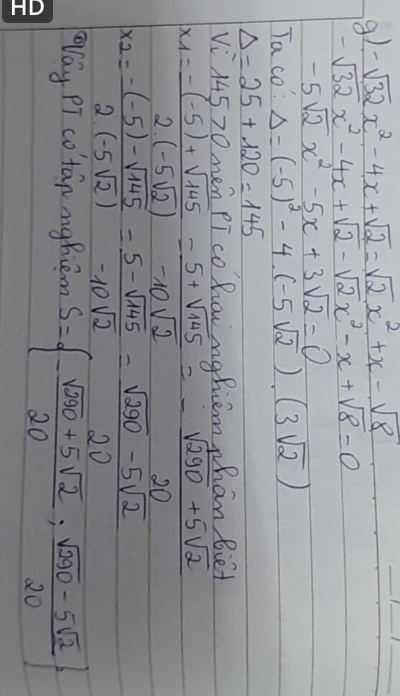 HD
g) -√32x² - 4x + √2 = √2x² + x - √8
-√32x² - 4x + √2 - √2x² - x + √8 = 0
-5√2x² - 5x + 3√2 = 0
Ta có: Δ = (-5)² - 4.(-5√2).(3√2)
Δ = 25 + 120 = 145
Vì 145 > 0 nên PT có hai nghiệm phân biệt
x1 = -(-5) + √145 / 2.(-5√2) = 5 + √145 / -10√2 = - √290 + 5√2 / 20
x2 = -(-5) - √145 / 2.(-5√2) = 5 - √145 / -10√2 = √290 - 5√2 / 20
Vậy PT có tập nghiệm S = { - √290 + 5√2 / 20 ; √290 - 5√2 / 20 }